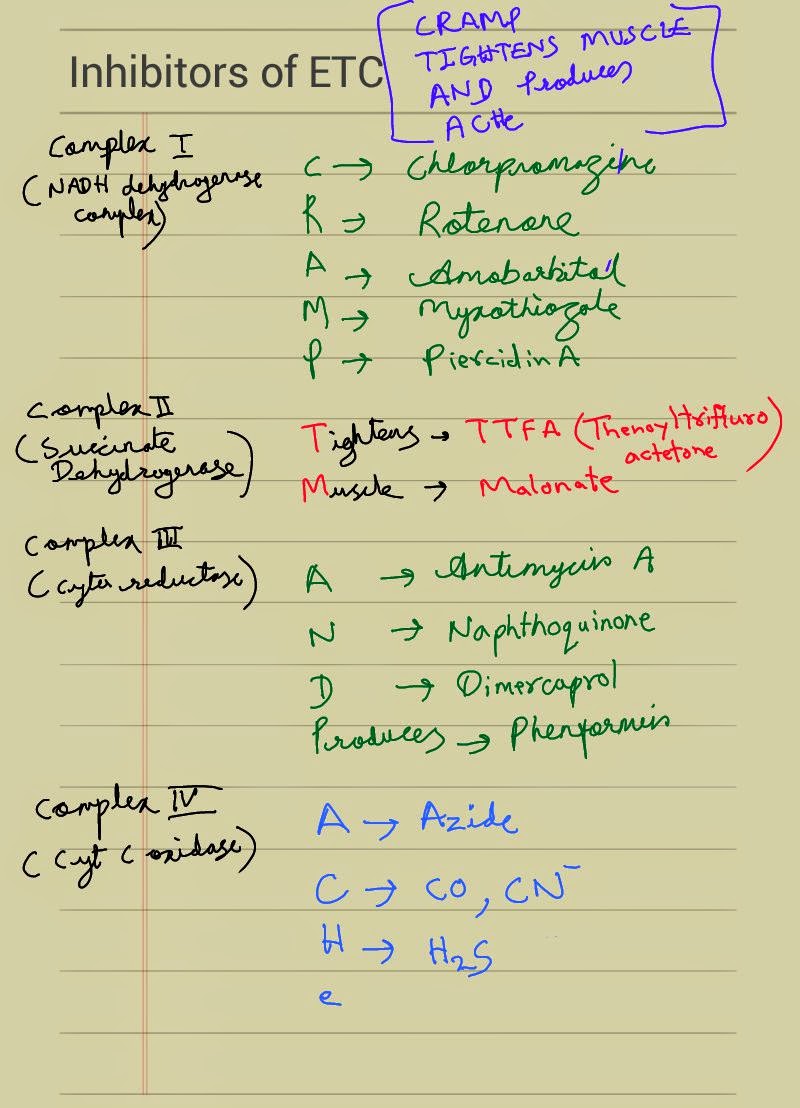 Inhibitors of ETC
CRAMP
TIGHTENS MUSCLE
AND Produces
ACHe
Complex I
(NADH dehydrogenase
complex)
C → Chlorpromazine
R → Rotenone
A → Amobarbital
M → Myxothiozole
P → Piercidin A
Complex II
(Succinate
Dehydrogenase)
Tightens → TTFA (Thenoyltrifluro
actetone)
Muscle → Malonate
Complex III
(Cyto reductase)
A → Antimycin A
N → Naphthoquinone
D → Dimercaprol
Produces → Phenformin
Complex IV
(Cyt C oxidase)
A → Azide
C → CO, CN⁻
H → H₂S
e